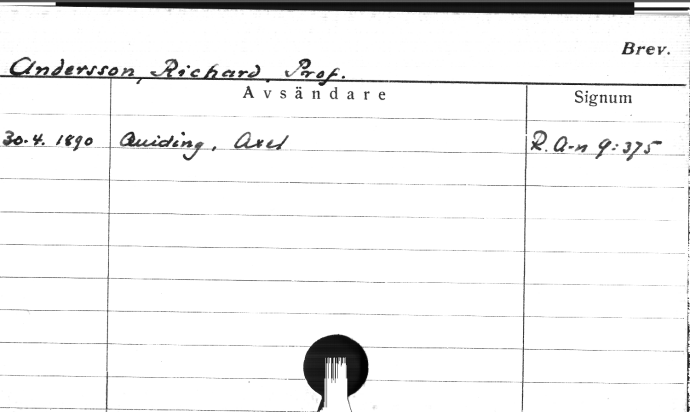 Brev.
Andersson, Richard, Prof.
Avsändare Signum
30.4. 1890 Quiding, Axel R. A-n 9:375